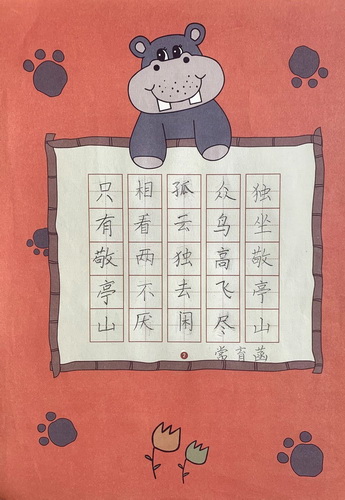 独坐敬亭山
众鸟高飞尽
孤云独去闲
相看两不厌
只有敬亭山
常育菡
2